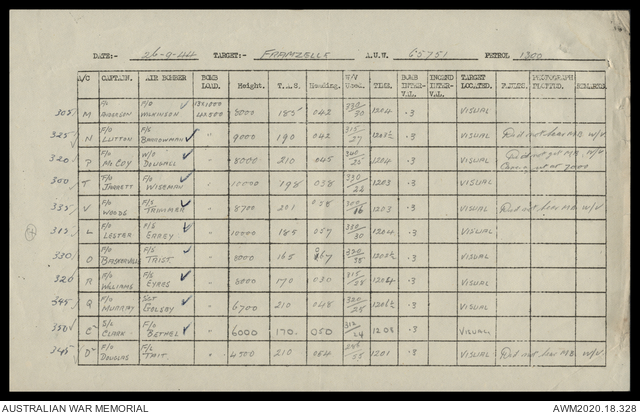 DATE:- 26-9-44 TARGET:- FRAMZELLE A.U.W. 65751 PETROL 1300
A/C CAPTAIN. AIR BOMBER BOMB LOAD. Height. T.A.S. Heading. W/V Used. TIME. BOMB INTER-VAL. INCEND INTER-VAL. TARGET LOCATED. PHOTOGRAPH PLOTTED. REMARKS.
305 M F/O ANDERSON F/O WILKINSON 8000 185 042 330/30 1204 .3 VISUAL
325 N F/O LUTTON F/S BARROWMAN " 9000 190 042 315/27 .3 VISUAL Did not hear M.B. W/V.
320 P F/O McCOY W/O DOUGALL " 8000 210 045 1204 .3 VISUAL Did not get M.B. W/V
300 T F/O JARRETT F/O WISEMAN " 10000 198 038 330/22 1203 .3 VISUAL
335 V F/O WOODS F/S TRIMMER " 8700 201 038 1203 .3 VISUAL Did not hear M.B. W/V.
315 L F/O LESTER F/S ERREY " 10000 185 037 1204 .3 VISUAL
330 O F/O BASKERVILLE F/S TAIST " 8000 165 .3 VISUAL
320 R F/O WILLIAMS F/S EYRES " 8000 170 030 315/28 1204 .3 VISUAL
345 Q F/O MURRAY SGT GOLSBY " 6700 210 048 320/25 .3 VISUAL
350 C² S/L CLARK F/O BETHEL " 6000 170. 050 1208 .3 VISUAL.
345 D² F/O DOUGLAS F/L TAIT " 4500 210 054 1201 .3 VISUAL Did not hear M.B. W/V.
AUSTRALIAN WAR MEMORIAL AWM2020.18.328